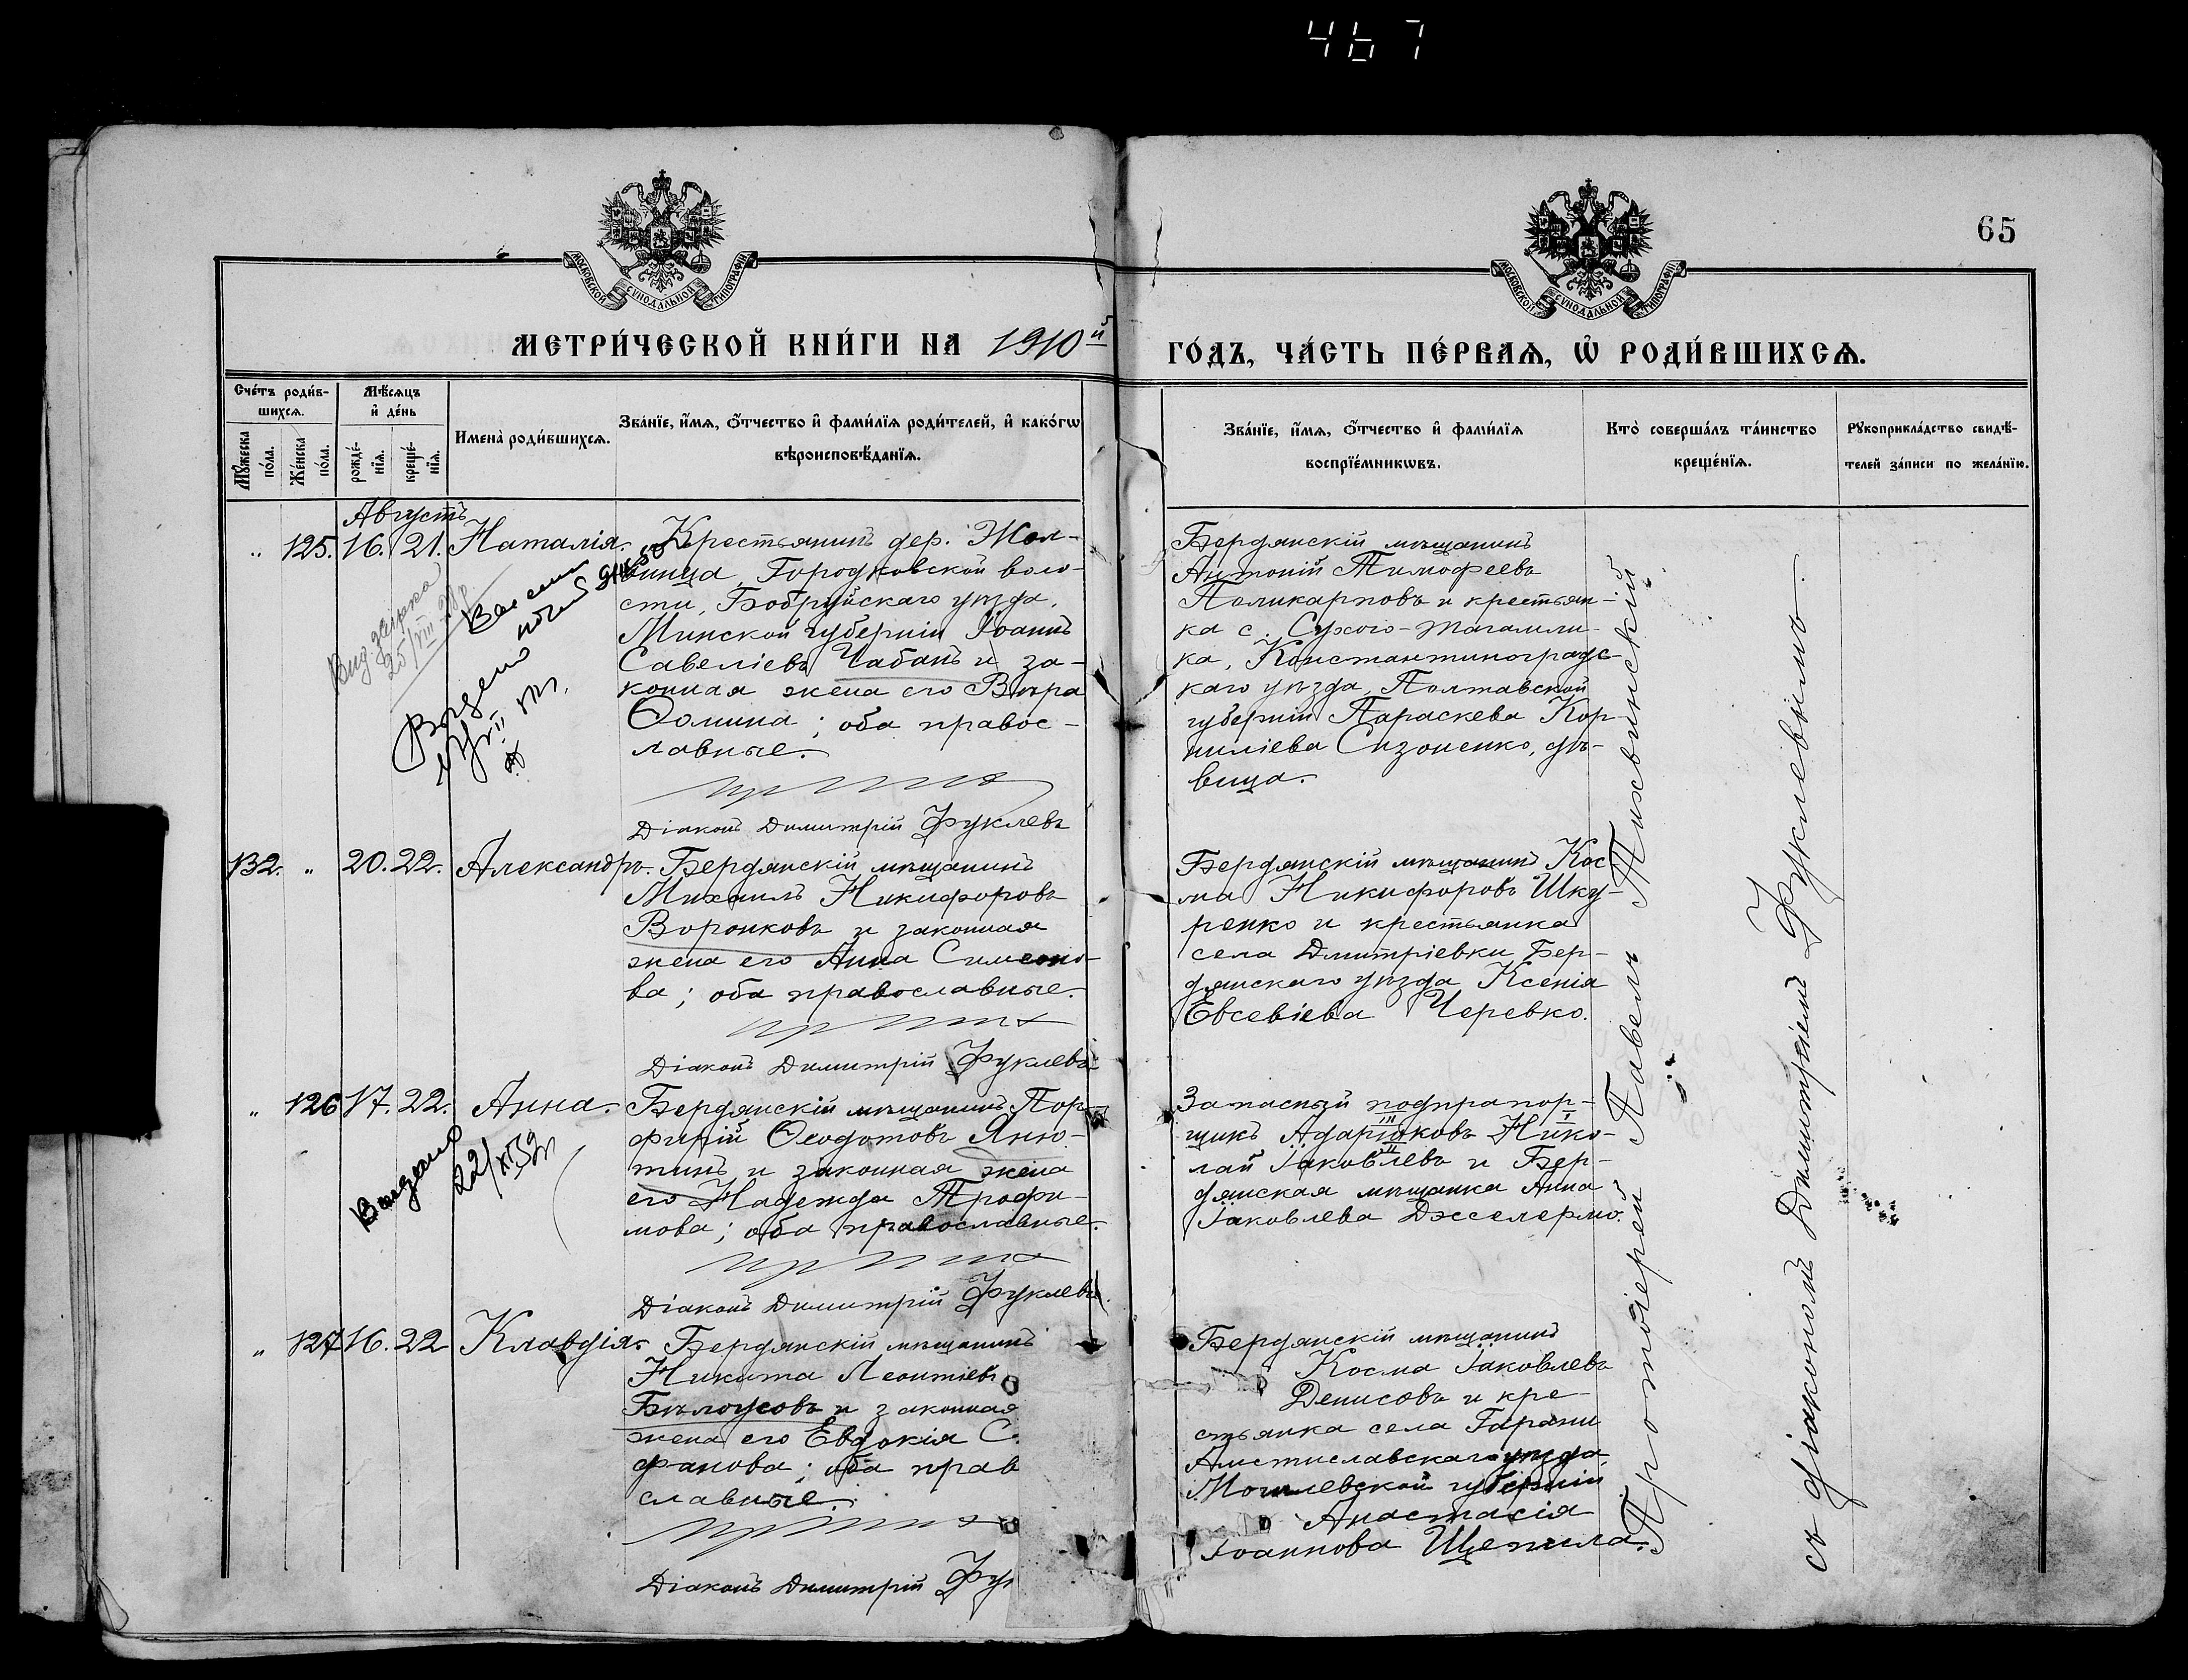 467
65
МОСКОВСКОЙ СѴНОДАЛЬНОЙ ТИПОГРАФІИ
МОСКОВСКОЙ СѴНОДАЛЬНОЙ ТИПОГРАФІИ
МЕТРИ́ЧЕСКОЙ КНИ́ГИ НА 1910й
ГО́ДЪ, ЧА́СТЬ ПЕ́РВАѦ, Ѡ҆ РОДИ́ВШИХСѦ.
Сче́тъ роди́в-
шихсѧ.
Мѣ́сѧцъ
и҆ де́нь
Мꙋ́жеска
по́ла.
Же́нска
по́ла.
рожде́-
нїѧ.
креще́-
нїѧ.
Имена̀ роди́вшихсѧ.
Зва́нїе, и҆́мѧ, ѻ҆́тчество и҆ фами́лїѧ роди́телей, и҆ како́гѡ
вѣроисповѣ́данїѧ.
Зва́нїе, и҆́мѧ, ѻ҆́тчество и҆ фами́лїѧ
воспрїе́мникѡвъ.
Кто̀ соверша́лъ та́инство
креще́нїѧ.
Рꙋкоприкла́дство свидѣ́-
телей за́писи по жела́нїю.
Августъ
„ 125. 16. 21. Наталія. Крестьянинъ дер. Жол-
винца, Городковской воло-
сти, Бобруйскаго уѣзда,
Минской губерніи Іоаннъ
Савеліевъ Чабанъ и за-
конная жена его Вѣра
Ѳомина; оба правос-
лавные.
Діаконъ Димитрій Фуклевъ
Выдано
Бердянскій мѣщанинъ
Антоній Тимофеевъ
Поликарповъ и крестьян-
ка с. Сухого-Тагамли-
ка, Константиноградс-
каго уѣзда, Полтавской
губерніи Параскева Кор-
ниліева Сизоненко, дѣ-
вица.
132. „ 20. 22. Александръ. Бердянскій мѣщанинъ
Михаилъ Никифоровъ
Воронковъ и законная
жена его Анна Симеоно-
ва; оба православные.
Діаконъ Димитрій Фуклевъ
Бердянскій мѣщанинъ Кос
ма Никифоровъ Шку-
ренко и крестьянка
села Дмитріевки Бер-
дянскаго уѣзда Ксенія
Евсевіева Черевко.
„ 126 17. 22. Анна. Бердянскій мѣщанинъ Пор-
фирій Ѳеодотовъ Яню-
тинъ и законная жена
его Надежда Трофи-
мова; оба православные.
Діаконъ Димитрій Фуклевъ
Выдано
22/XI 39г
Запасный подпрапор-
щикъ Адарюковъ Нико-
лай Іаковлевъ и Бер-
дянская мѣщанка Анна
Іаковлева Джелермо.
„ 127 16. 22 Клавдія. Бердянскій мѣщанинъ
Никита Леонтіевъ
Бѣлоусовъ и законная
жена его Евдокія С.
фанова; оба прав
славные.
Діаконъ Димитрій Фу
Бердянскій мѣщанинъ
Косма Іаковлевъ
Денисовъ и кре-
стьянка села Гаряни
Амстиславскаго уѣзда
Могилевской губерніи
Анастасія
Іоаннова Щепила.
Протоіерей Павелъ Тихвинскій
съ діакономъ Димитріемъ Фуклевымъ.